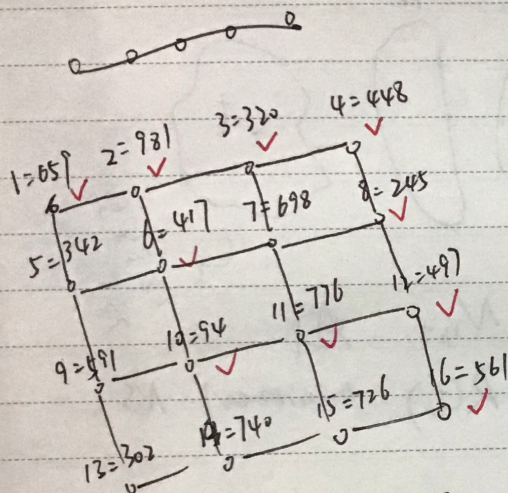 1=659
2=981
3=320
4=448
5=342
6=417
7=698
8=245
9=591
10=94
11=776
12=497
13=302
14=740
15=726
16=561